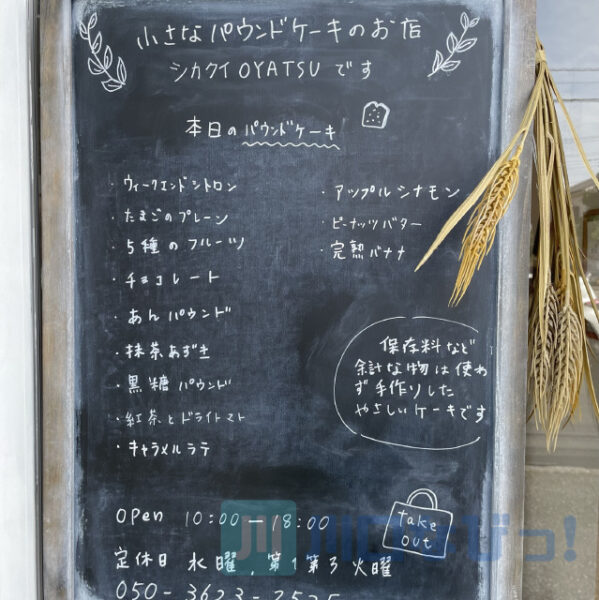 小さなパウンドケーキのお店
シカクイOYATSUです
本日のパウンドケーキ
・ウィークエンドシトロン
・たまごのプレーン
・5種のフルーツ
・チョコレート
・あんパウンド
・抹茶あずき
・黒糖パウンド
・紅茶とドライトマト
・キャラメルラテ
・アップルシナモン
・ピーナッツバター
・完熟バナナ
保存料など
余計な物は使わ
ず手作りした
やさしいケーキです
OPen 10:00-18:00
take
out
定休日 水曜、第1第3火曜
050-3623-2525